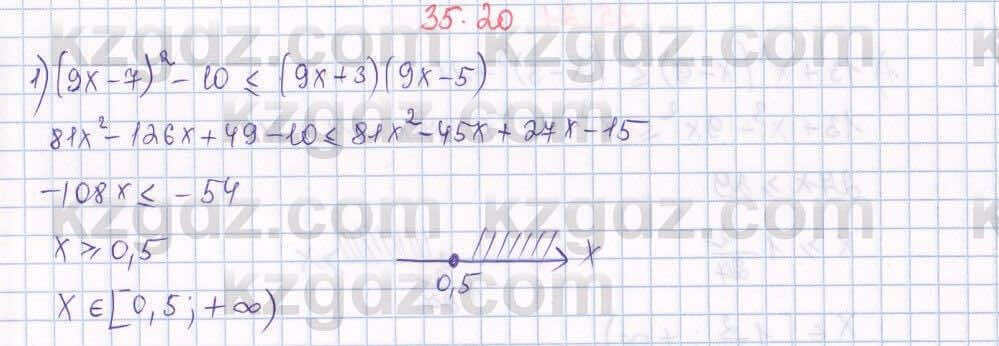 35.20
1) (9x-7)² - 10 ≤ (9x+3)(9x-5)
81x² - 126x + 49 - 10 ≤ 81x² - 45x + 27x - 15
-108x ≤ -54
x ≥ 0,5
x
0,5
x ∈ [0,5; +∞)
kzgdz.com
kzgdz.com
kzgdz.com
kzgdz.com
kzgdz.com